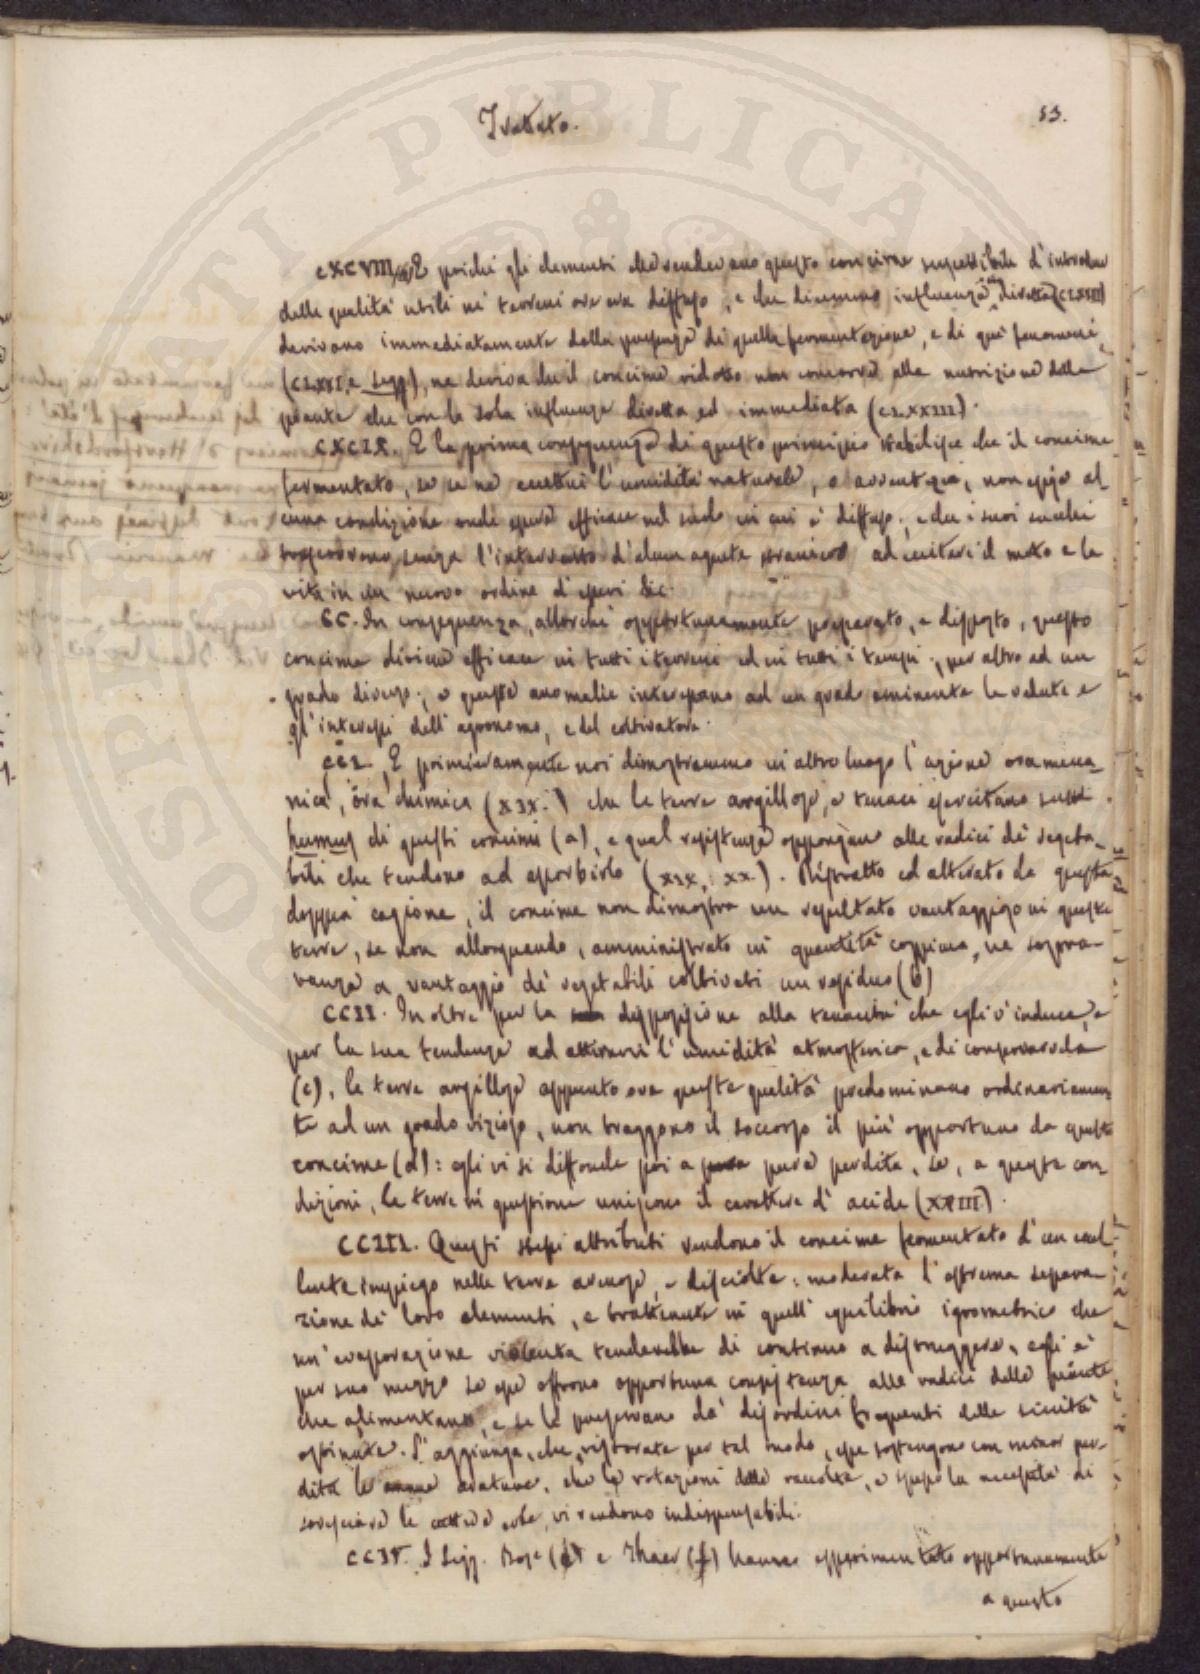 Trattato.
53.
CXCVIII. E poiché gli elementi che rendevano questo concime suscettibile d'introdur
delle qualità utili ne' terreni ove era diffuso, e che dicemmo influenza diretta (CLXXIII)
derivano immediatamente dalla presenza di quella fermentazione, e di que' fenomeni,
(CLXXI. e segg), ne deriva che il concime ridotto non concorre alla nutrizione delle
piante che con la sola influenza diretta ed immediata (CLXXIII).
CXCIX. E la prima conseguenza di questo principio stabilisce che il concime
fermentato, se se ne eccettui l'umidità naturale, o avventizia, non esige al-
cuna condizione onde essere efficace nel suolo in cui è diffuso; e che i suoi succhi
senza l'intervento d'alcun agente straniero ad eccitare il moto e la
vita in un nuovo ordine d'esseri &c.
CC. In conseguenza, allorché opportunamente preparato, e disposto, questo
concime diviene efficace in tutti i terreni ed in tutti i tempi; per altro ad un
grado diverso; e queste anomalie interessano ad un grado eminente la salute e
gl'interessi dell'agronomo, e del coltivatore.
CCI. E primieramente noi dimostrammo in altro luogo l'azione ora mecca-
nica, ora chimica (XIX.) che le terre argillose, e tenaci esercitano sull'
humus di questi concimi (a), e qual resistenza oppongano alle radici de' vegeta-
bili che tendono ad assorbirlo (XIX, XX.). Distratto ed alterato da questa
doppia cagione, il concime non dimostra un resultato vantaggioso in queste
terre, se non allorquando, amministrato in quantità coppiosa, ne sopra-
vanza a vantaggio de' vegetabili coltivati un residuo (b)
CCII. Inoltre per la disposizione alla tenacità che egli v'induce, e
per la sua tendenza ad attirarsi l'umidità atmosferica, e di conservarvela
(c), le terre argillose appunto ove queste qualità predominano ordinariamen-
te ad un grado vizioso, non traggono il soccorso il più opportuno da questo
concime (d): egli vi si diffonde poi a pura perdita, se, a queste con-
dizioni, le terre in questione uniscono il carattere d'acide (XXIII).
CCIII. Questi stessi attributi rendono il concime fermentato d'un eccel-
lente impiego nelle terre arenose, e disciolte: moderata l'estrema separa-
zione de' loro elementi, e trattenute in quell'equilibrio igrometrico che
un'evaporazione violenta tenderebbe di continuo a distruggere, egli è
per suo mezzo se esse offrono opportuna consistenza alle radici delle piante
che alimentano, e se le preservano da' disordini frequenti delle siccità
ostinate. S'aggiunga, che, ristorate per tal modo, esse sostengono con minor per-
dita le arature, che le rotazioni delle raccolte, e spesso la necessità di
le erbe, vi rendono indispensabili.
CCIV. I Sigg. e Thaer (f) hanno esperimentato opportunamente
a questo